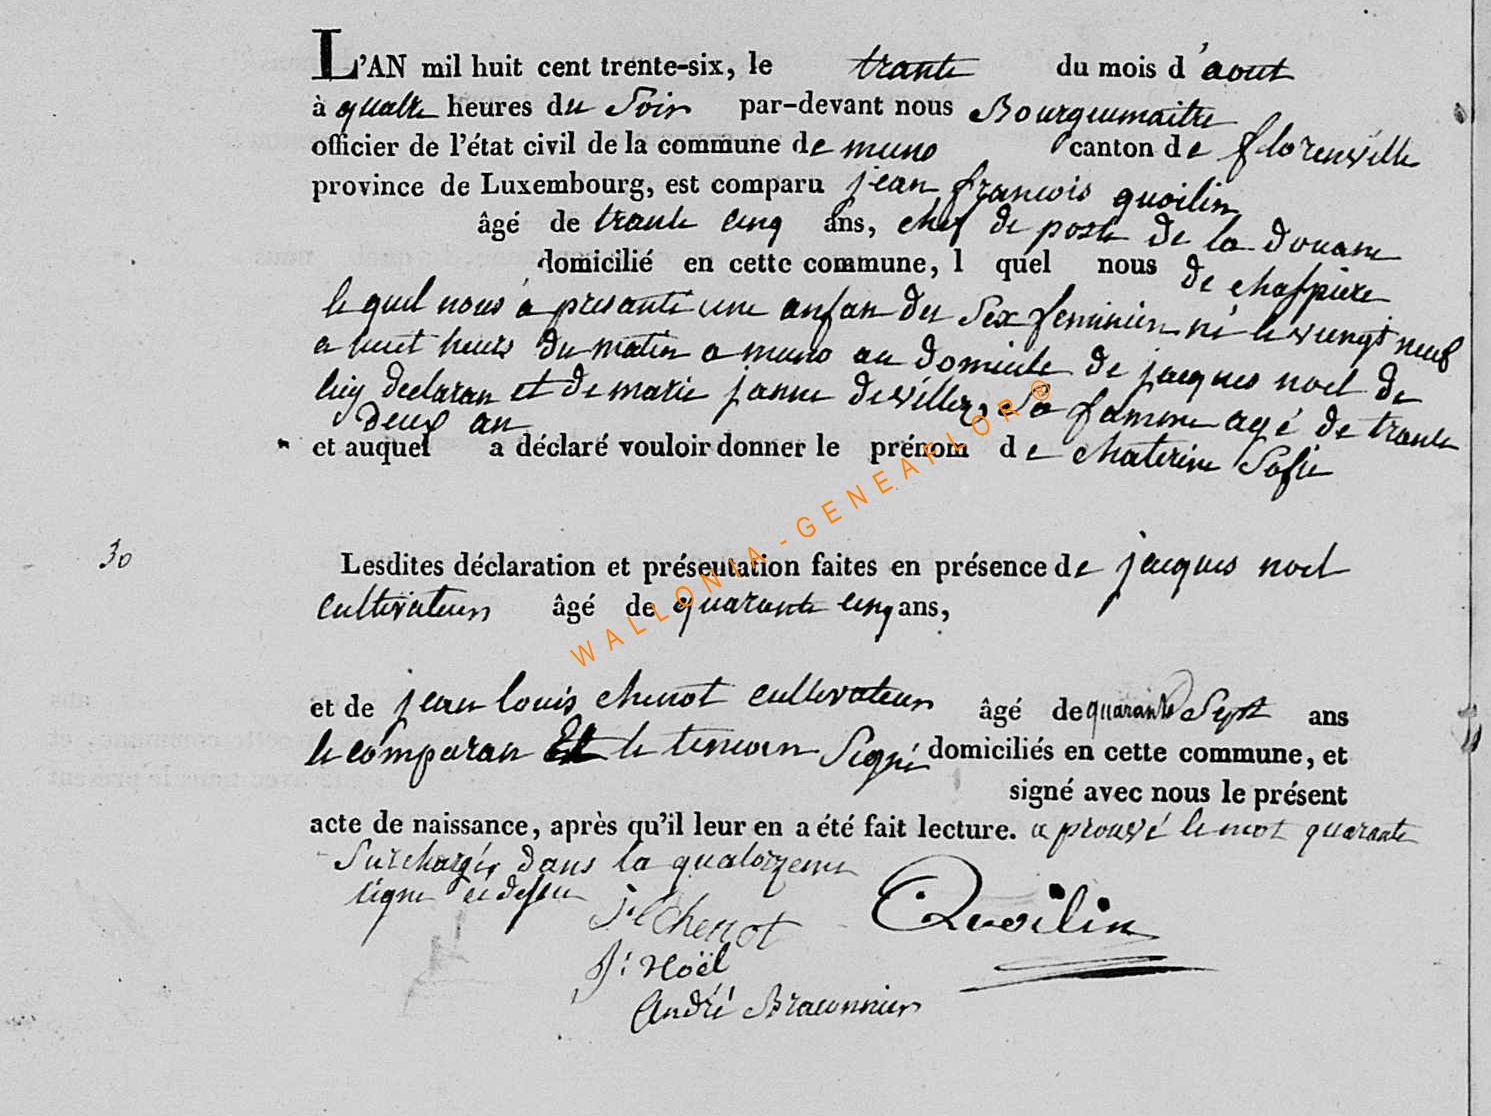 L'AN mil huit cent trente-six, le trante du mois d'aout
à quatre heures du Soir par-devant nous Bourguemaitre
officier de l'état civil de la commune de muno canton de florenville
province de Luxembourg, est comparu jean françois quoilin
âgé de trante cinq ans, chef de poste de la douane
domicilié en cette commune, l quel nous de chaspiere
le quel nous a presanté une anfan du Sex feminien né le vungt neuf
a huit heurs du matin a muno au domicile de jacques noel de
luy declaran et de marie janne deviller, Sa famme agé de trante
deux an
et auquel a déclaré vouloir donner le prénom de chaterine Sofie
30
Lesdites déclaration et présentation faites en présence de jacques noel
cultivateur âgé de quarante cinq ans,
et de jean louis chenot cultivateur âgé de quarante Sept ans
le comparan Et le temoin Signé domiciliés en cette commune, et
signé avec nous le présent
acte de naissance, après qu'il leur en a été fait lecture. a prouvé le mot quarante
Surchargé, dans la quatorzeme
ligne ci dessu
jl Chenot Quoilin
J: Noël
André Braconnier
WALLONIA-GENEAFLOR®